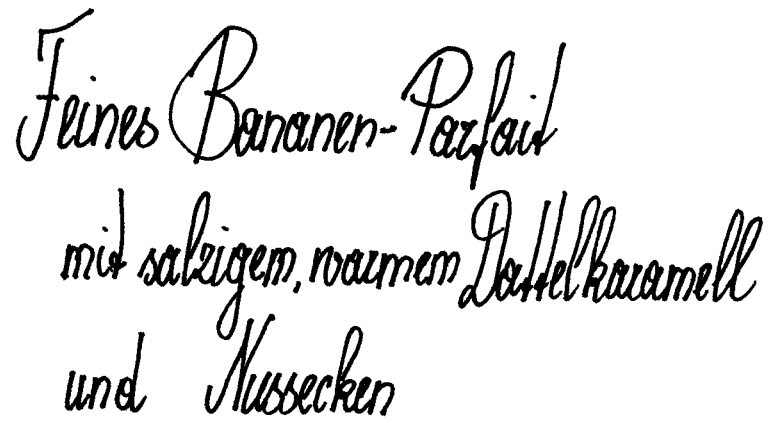 Feines Bananen-Parfait
mit salzigem, warmem Dattelkaramell
und Nussecken